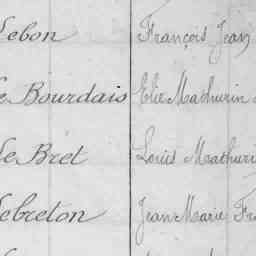 Lebon François Jean
Le Bourdais Elie Mathurin
Le Bret Louis Mathuri
Lebreton Jean Marie Fr